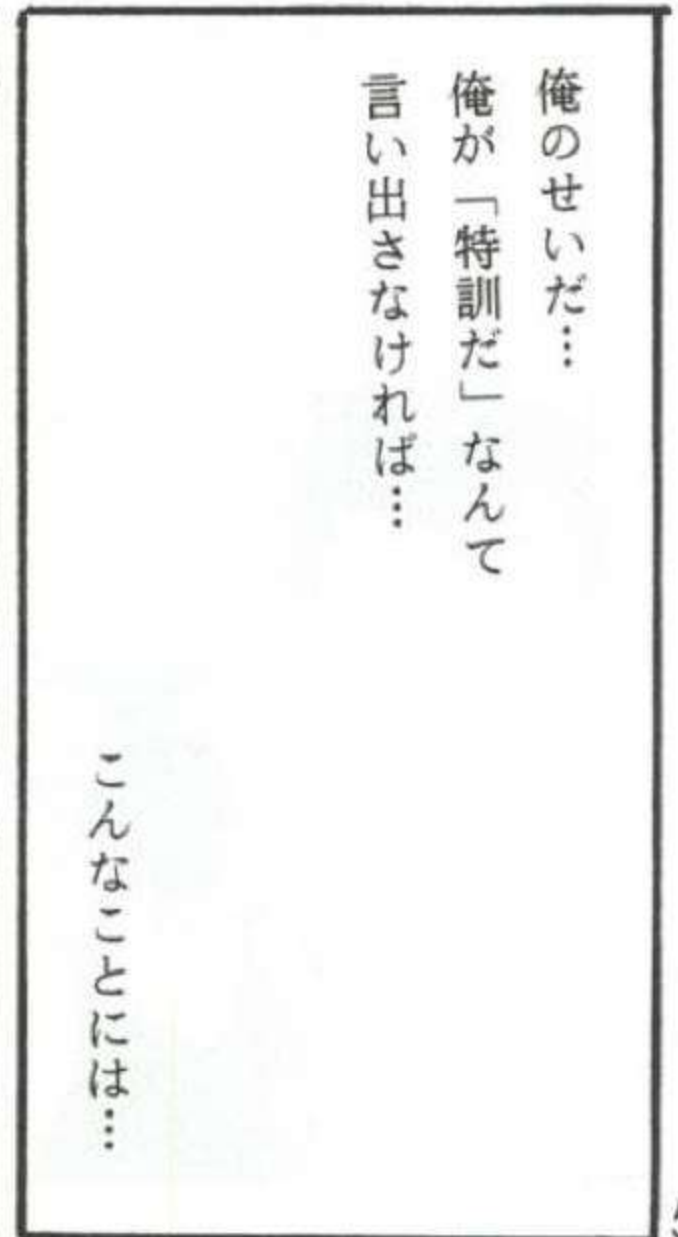 俺のせいだ…
俺が「特訓だ」なんて
言い出さなければ…
こんなことには…